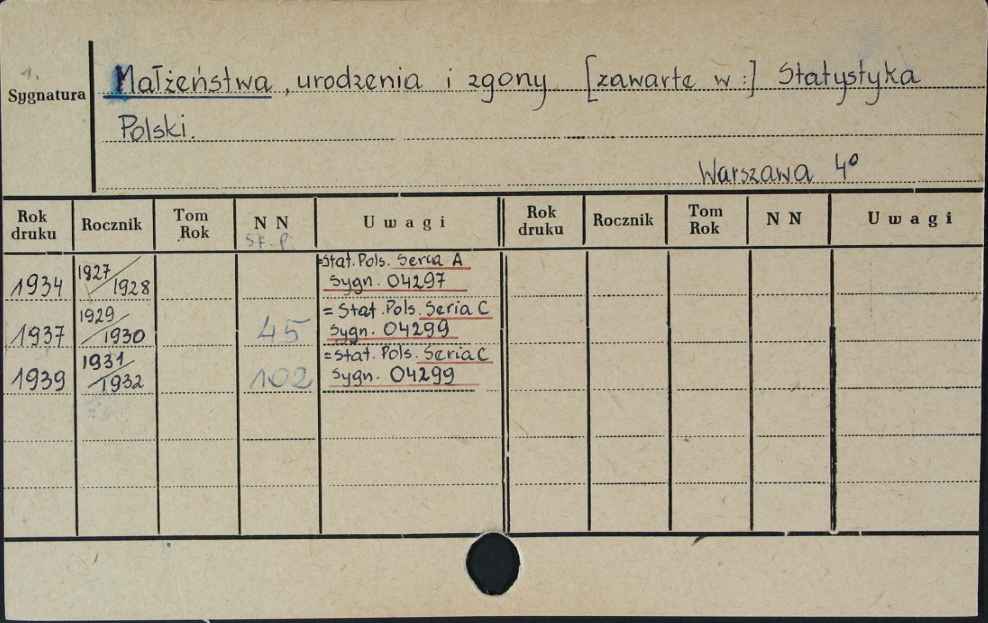 Małżeństwa, urodzenia i zgony [zawarte w:] Statystyka
Sygnatura
Polski.
Warszawa 4º
Rok druku Rocznik Tom Rok N N U w a g i Rok druku Rocznik Tom Rok N N U w a g i
1934 1927/1928 =Stat. Pols. Seria A
Sygn. 04297
1937 1929/1930 45 = Stat. Pols. Seria C
Sygn. 04299
1939 1931/1932 102 =Stat. Pols. Seria C
Sygn. 04299